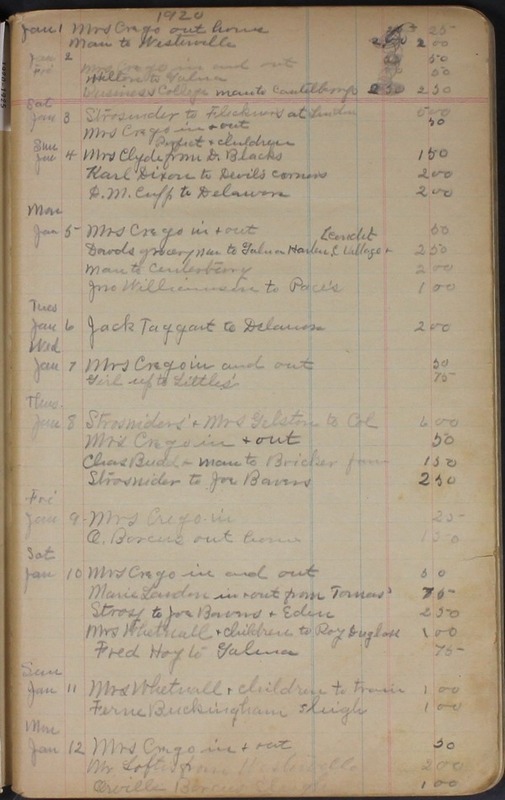 1920
Jan 1 Mrs Crego out home 25
Man to Westerville 2 00
Jan 2 Mrs Crego in and out 50
Fri Wilson to Galena 50
Business College man to 250 2 50
Sat
Jan 3 Strosnider to at Linden 5 00
Mrs Crego in + out 50
Sun Perfect + children
Jan 4 Mrs Clyde from D. Blacks 1 50
Karl Dixon to Devils corners 2 00
D. M. Cupp to Delaware 2 00
Mon
Jan 5 Mrs Crego in + out 50
Davids grocery man to Galena Harlem L. Village + 2 50
Man to Centerburg 2 00
Jno Williamson to Pace's 1 00
Tues
Jan 6 Jack Taggart to Delaware 2 00
Wed
Jan 7 Mrs Crego in and out 50
Girl up to Little's 75
Thurs.
Jan 8 Strosniders + Mrs Gelston to Col 6 00
Mrs Crego in + out 50
Chas Budd + man to Bricker farm 1 50
Strosnider to Joe Bavers 2 50
Fri
Jan 9 Mrs Crego in 25
O. Borcus out home 1 50
Sat
Jan 10 Mrs Crego in and out 50
Marie Landon in + out from Tomas' 75
Stros to Joe Bavers + Eden 2 50
Mrs Whetnall + children to Roy Duglass 1 00
Fred Hoy to Galena 75
Sun
Jan 11 Mrs Whetnall + children to train 1 00
Ferne Buckingham sleigh 1 00
Mon
Jan 12 Mrs Crego in + out 50
Mr Loftis from Westerville 2 00
Orville Borcus 1 00